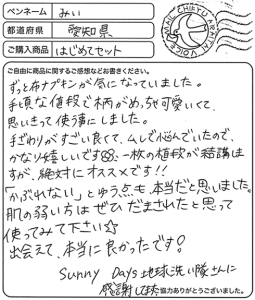 ペンネーム みぃ
都道府県 愛知県
ご購入商品 はじめてセット
CHIKYU ARAITAI
VOICE MAIL
ご自由に商品に関するご感想などお書きください。
ずっと布ナプキンが気になっていました。
手頃な値段で柄がめっちゃ可愛いくて、
思いきって使う事にしました。
手ざわりがすごい良くて、ムレで悩んでいたので、
かなり嬉しいです 一枚の値段が結構はり
ますが、絶対にオススメです!!
「かぶれない」とゆう点も、本当だと思いました。
肌の弱い方はぜひ だまされたと思って
使ってみて下さい☆
出会えて、本当に良かったです!
Sunny Days 地球洗い隊さんに
感謝してます
ご協力ありがとうございました。